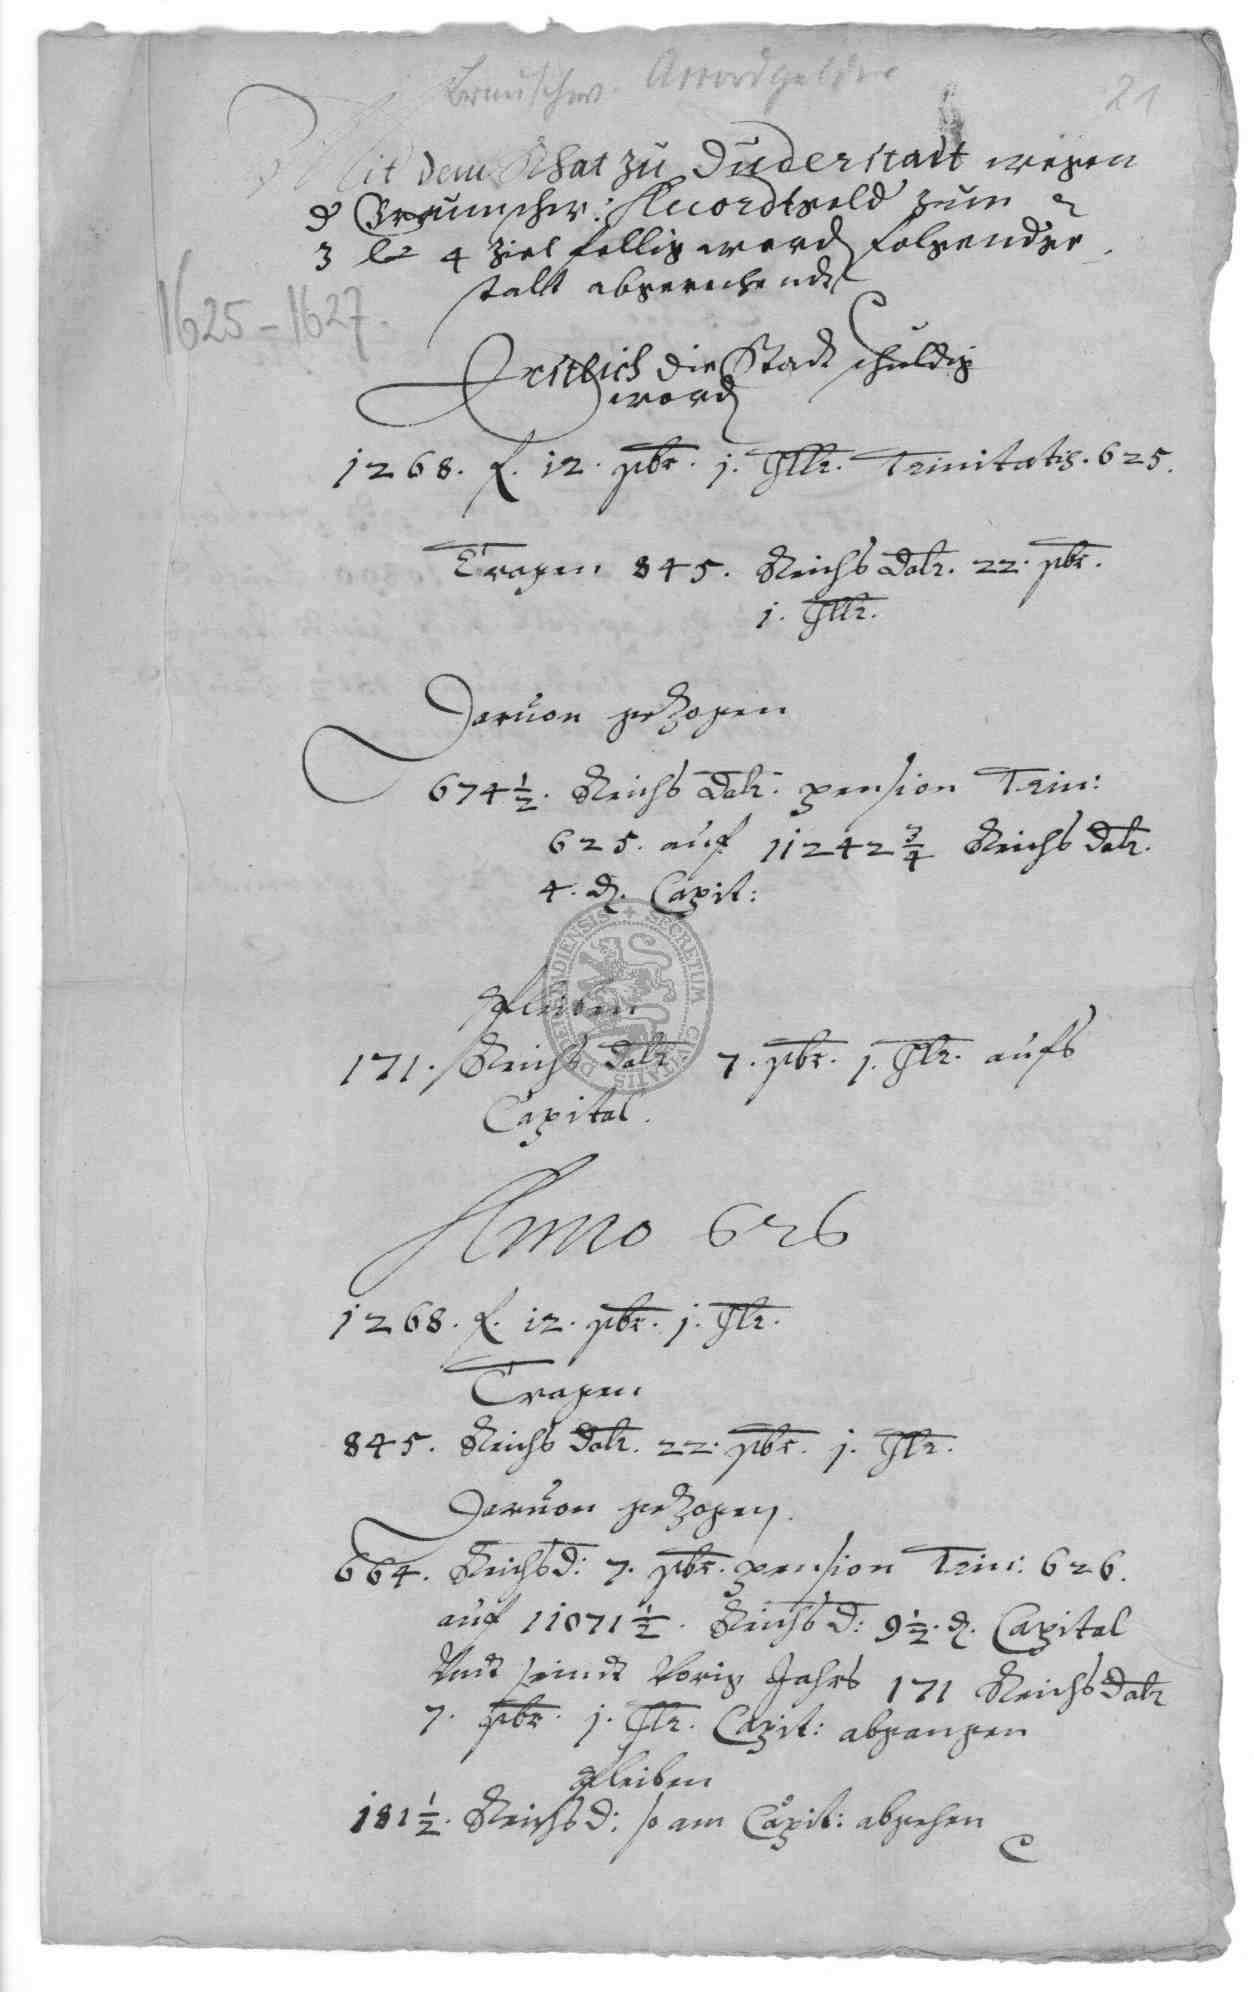 Braunschw. Accordgelder
21
Mit dem Rhat zu Duderstadt wegen
d Braunschw: Accordtgeld zum 2
3 4 Ziel fellig word folgender
stalt abgerechendt
1625-1627.
Erstlich die Stadt schuldig
word
1268. f. 12. gr. j. Pllr. Trinitatis. 625.
Tragen 845. Reichs Dalr. 22. gr.
j. Pllr.
Daruon gezogen
674 1/2. Reichs Dalr. pension Trin:
625. auf 11242 3/4 Reichs Dalr.
4. d. Capit:
SECRETUM CIVITATIS DUDERSTADIENSIS
Pleiben
171. Reichs Dalr 7. gr. j. Plr. aufs
Capital.
Anno 626
1268. f. 12. gr. j. Plr.
Tragen
845. Reichs Dalr. 22. gr. j. Plr.
Daruon gezogen.
664. Reichs D: 7. gr. pension Trin: 626.
auf 11071 1/2. Reichs D: 9 1/2. d. Capital
Undt seindt Vorig Jahrs 171 Reichs Dalr
7. gr. j. Plr. Capit: abgangen
Pleiben
181 1/2. Reichs D: so am Capit: abgehen